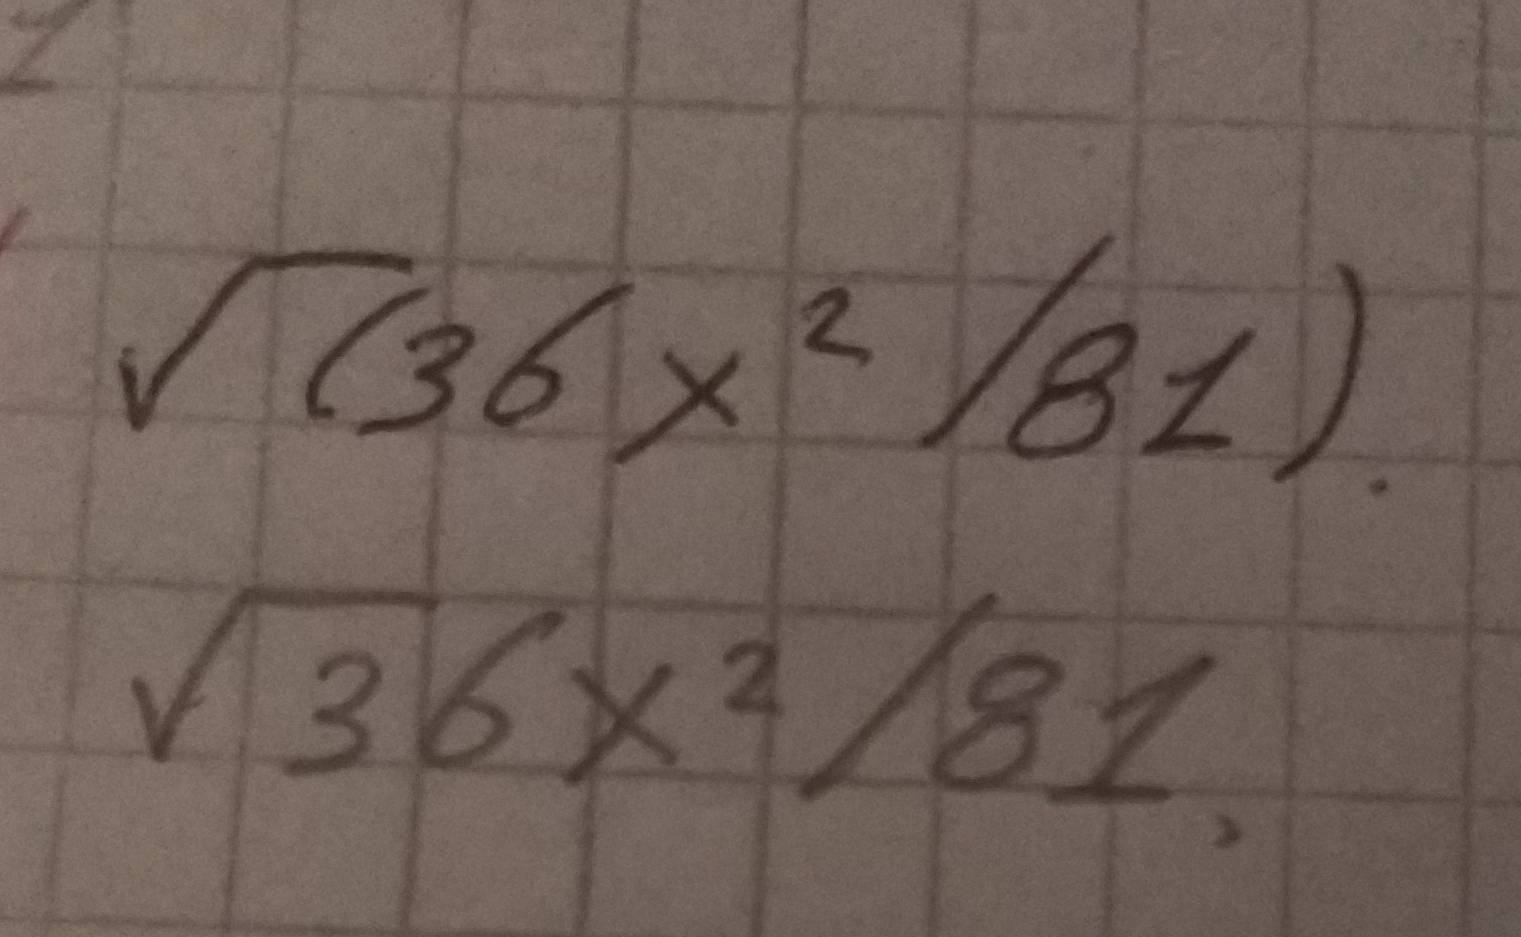 √(36x²/81).
√36x²/81,